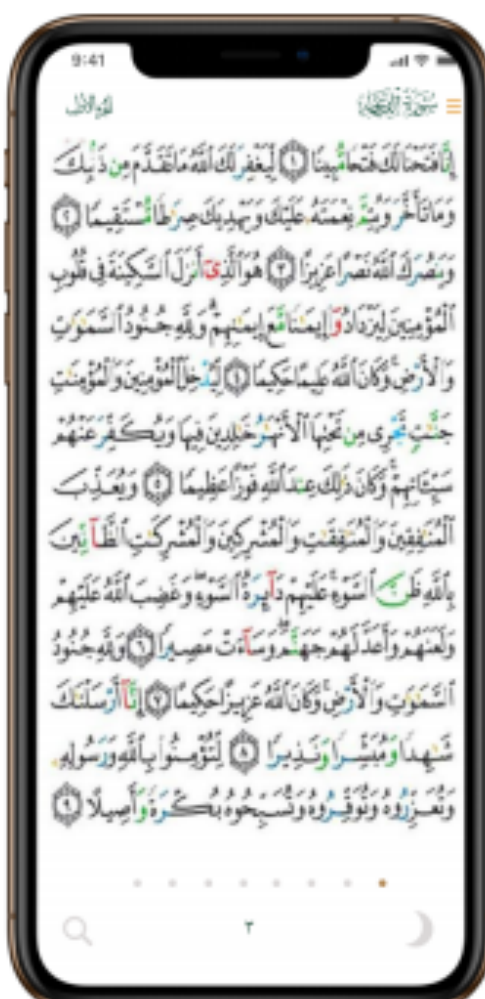 9:41
سُورَةُ الْفَتْحِ
الجزء الأول
إِنَّا فَتَحْنَا لَكَ فَتْحًا مُّبِينًا ١ لِّيَغْفِرَ لَكَ ٱللَّهُ مَا تَقَدَّمَ مِن ذَنۢبِكَ
وَمَا تَأَخَّرَ وَيُتِمَّ نِعْمَتَهُۥ عَلَيْكَ وَيَهْدِيَكَ صِرَٰطًا مُّسْتَقِيمًا ٢
وَيَنصُرَكَ ٱللَّهُ نَصْرًا عَزِيزًا ٣ هُوَ ٱلَّذِىٓ أَنزَلَ ٱلسَّكِينَةَ فِى قُلُوبِ
ٱلْمُؤْمِنِينَ لِيَزْدَادُوٓا۟ إِيمَٰنًا مَّعَ إِيمَٰنِهِمْ وَلِلَّهِ جُنُودُ ٱلسَّمَٰوَٰتِ
وَٱلْأَرْضِ وَكَانَ ٱللَّهُ عَلِيمًا حَكِيمًا ٤ لِّيُدْخِلَ ٱلْمُؤْمِنِينَ وَٱلْمُؤْمِنَٰتِ
جَنَّٰتٍ تَجْرِى مِن تَحْتِهَا ٱلْأَنْهَٰرُ خَٰلِدِينَ فِيهَا وَيُكَفِّرَ عَنْهُمْ
سَيِّـَٔاتِهِمْ وَكَانَ ذَٰلِكَ عِندَ ٱللَّهِ فَوْزًا عَظِيمًا ٥ وَيُعَذِّبَ
ٱلْمُنَٰفِقِينَ وَٱلْمُنَٰفِقَٰتِ وَٱلْمُشْرِكِينَ وَٱلْمُشْرِكَٰتِ ٱلظَّآنِّينَ
بِٱللَّهِ ظَنَّ ٱلسَّوْءِ عَلَيْهِمْ دَآئِرَةُ ٱلسَّوْءِ وَغَضِبَ ٱللَّهُ عَلَيْهِمْ
وَلَعَنَهُمْ وَأَعَدَّ لَهُمْ جَهَنَّمَ وَسَآءَتْ مَصِيرًا ٦ وَلِلَّهِ جُنُودُ
ٱلسَّمَٰوَٰتِ وَٱلْأَرْضِ وَكَانَ ٱللَّهُ عَزِيزًا حَكِيمًا ٧ إِنَّآ أَرْسَلْنَٰكَ
شَٰهِدًا وَمُبَشِّرًا وَنَذِيرًا ٨ لِّتُؤْمِنُوا۟ بِٱللَّهِ وَرَسُولِهِۦ
وَتُعَزِّرُوهُ وَتُوَقِّرُوهُ وَتُسَبِّحُوهُ بُكْرَةً وَأَصِيلًا ٩
٣